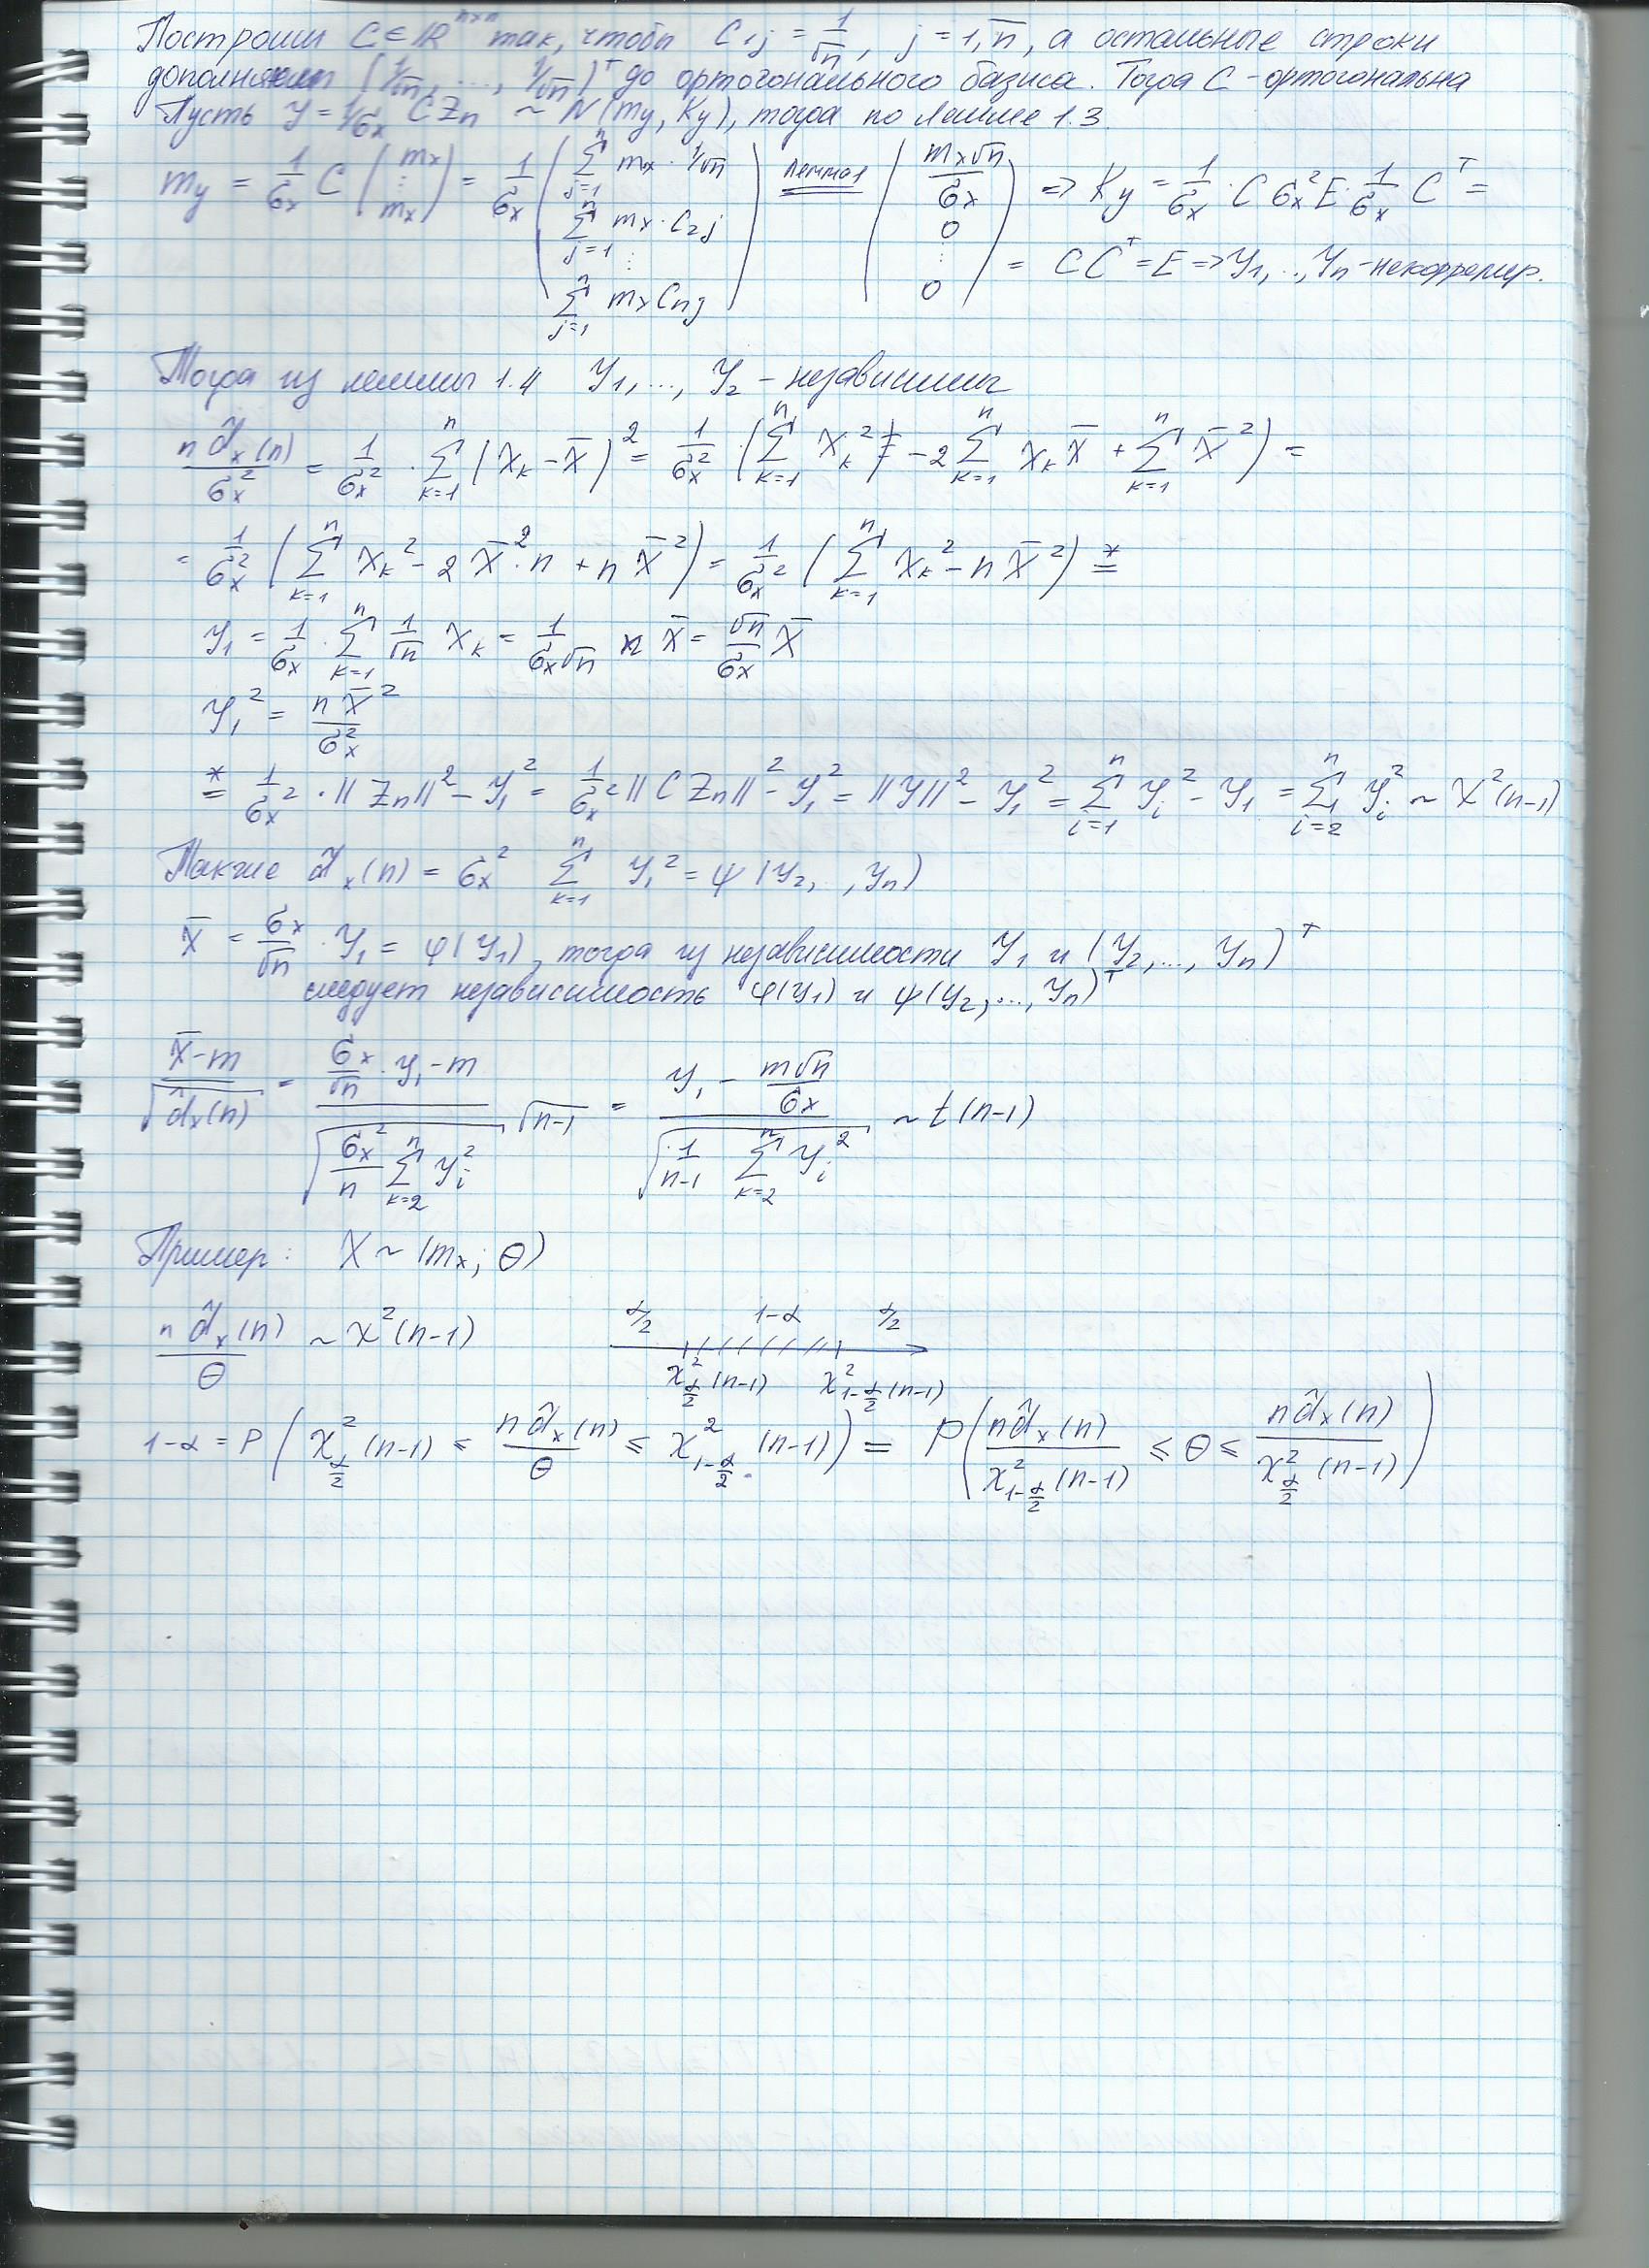 Построим C ∈ ℝ^{n×n} так, чтобы C_{1j} = 1/√n, j = 1,n̅, а остальные строки
дополняли (1/√n, ..., 1/√n)^T до ортогонального базиса. Тогда C - ортогональна
Пусть Y = 1/σ_x C Z_n ~ N(m_y, K_y), тогда по лемме 1.3
m_y = 1/σ_x C (m_x ⋮ m_x) = 1/σ_x (∑_{j=1}^{n} m_x · 1/√n, ∑_{j=1}^{n} m_x · C_{2j}, ⋮, ∑_{j=1}^{n} m_x C_{nj}) =^{лемма 1} (m_x√n/σ_x, 0, ⋮, 0) => K_y = 1/σ_x · C σ_x² E · 1/σ_x C^T =
= C C^T = E => Y_1, .., Y_n - некоррелир.
Тогда из леммы 1.4 Y_1, ..., Y_2 - независимы
n d̂_x(n)/σ_x² = 1/σ_x² · ∑_{k=1}^{n} (X_k - X̅)² = 1/σ_x² · (∑_{k=1}^{n} X_k² - 2∑_{k=1}^{n} X_k X̅ + ∑_{k=1}^{n} X̅²) =
= 1/σ_x² (∑_{k=1}^{n} X_k² - 2 X̅² · n + n X̅²) = 1/σ_x² (∑_{k=1}^{n} X_k² - n X̅²) =^*
Y_1 = 1/σ_x · ∑_{k=1}^{n} 1/√n X_k = 1/(σ_x√n) n X̅ = √n/σ_x X̅
Y_1² = n X̅²/σ_x²
=^* 1/σ_x² · ||Z_n||² - Y_1² = 1/σ_x² ||C Z_n||² - Y_1² = ||Y||² - Y_1² = ∑_{i=1}^{n} Y_i² - Y_1 = ∑_{i=2}^{n} Y_i² ~ χ²(n-1)
Также d̂_x(n) = σ_x² ∑_{k=1}^{n} Y_i² = ψ(Y_2, .., Y_n)
X̅ = σ_x/√n · Y_1 = φ(Y_1), тогда из независимости Y_1 и (Y_2, ..., Y_n)^T
следует независимость φ(Y_1) и ψ(Y_2, ..., Y_n)^T
(X̅ - m)/√(d̂_x(n)) = (σ_x/√n · Y_1 - m)/√(σ_x²/n ∑_{k=2}^{n} Y_i²) √(n-1) = (Y_1 - m√n/σ_x)/√(1/(n-1) ∑_{k=2}^{n} Y_i²) ~ t(n-1)
Пример: X ~ (m_x; θ)
n d̂_x(n)/θ ~ χ²(n-1)
α/2 1-α α/2
χ²_{α/2}(n-1) χ²_{1-α/2}(n-1)
1-α = P(χ²_{α/2}(n-1) ≤ n d̂_x(n)/θ ≤ χ²_{1-α/2}(n-1)) = P(n d̂_x(n)/χ²_{1-α/2}(n-1) ≤ θ ≤ n d̂_x(n)/χ²_{α/2}(n-1))